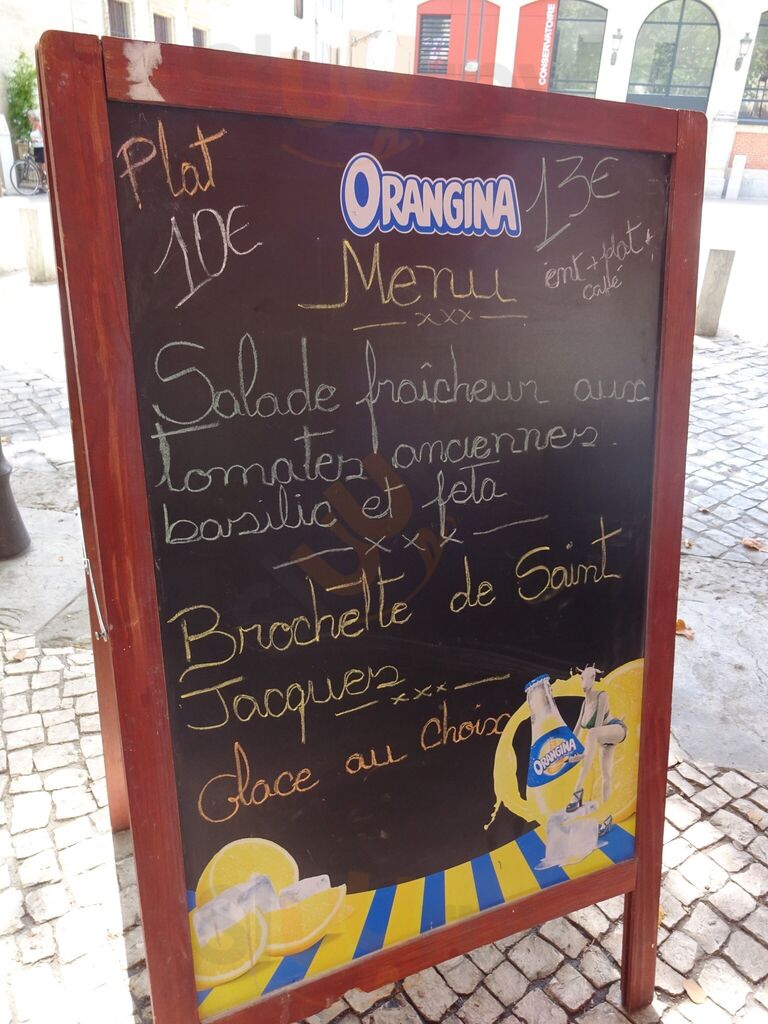 CONSERVATOIRE
Plat
10€
ORANGINA
13€
ent + plat +
café
Menu
xxx
Salade fraîcheur aux
tomates anciennes.
basilic et feta
xxx
Brochette de Saint
Jacques
xxx
Glace au choix
ORANGINA